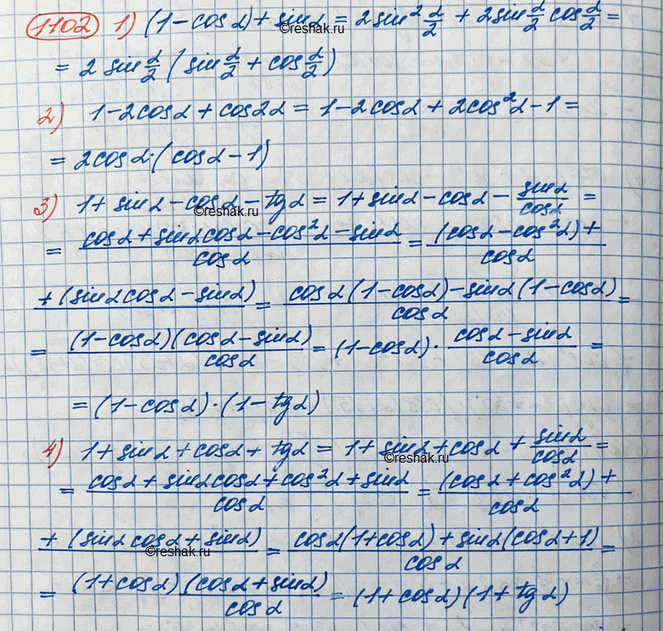 1102 1) (1-cosα)+sinα = 2sin²α/2 + 2sinα/2 cosα/2 =
©reshak.ru
= 2 sinα/2 (sinα/2 + cosα/2)
2) 1-2cosα + cos2α = 1-2cosα + 2cos²α-1 =
= 2cosα·(cosα-1)
3) 1+sinα-cosα-tgα = 1+sinα-cosα- sinα/cosα =
©reshak.ru
= (cosα+sinαcosα-cos²α-sinα)/cosα = (cosα-cos²α)+/cosα
+(sinαcosα-sinα)/ = (cosα(1-cosα)-sinα(1-cosα))/cosα =
= (1-cosα)(cosα-sinα)/cosα = (1-cosα)· (cosα-sinα)/cosα =
= (1-cosα)·(1-tgα)
4) 1+sinα+cosα+tgα = 1+sinα+cosα+ sinα/cosα =
©reshak.ru
= (cosα+sinαcosα+cos²α+sinα)/cosα = (cosα+cos²α)+/cosα
+(sinαcosα+sinα)/ = (cosα(1+cosα)+sinα(cosα+1))/cosα =
©reshak.ru
= (1+cosα)(cosα+sinα)/cosα = (1+cosα)(1+tgα)